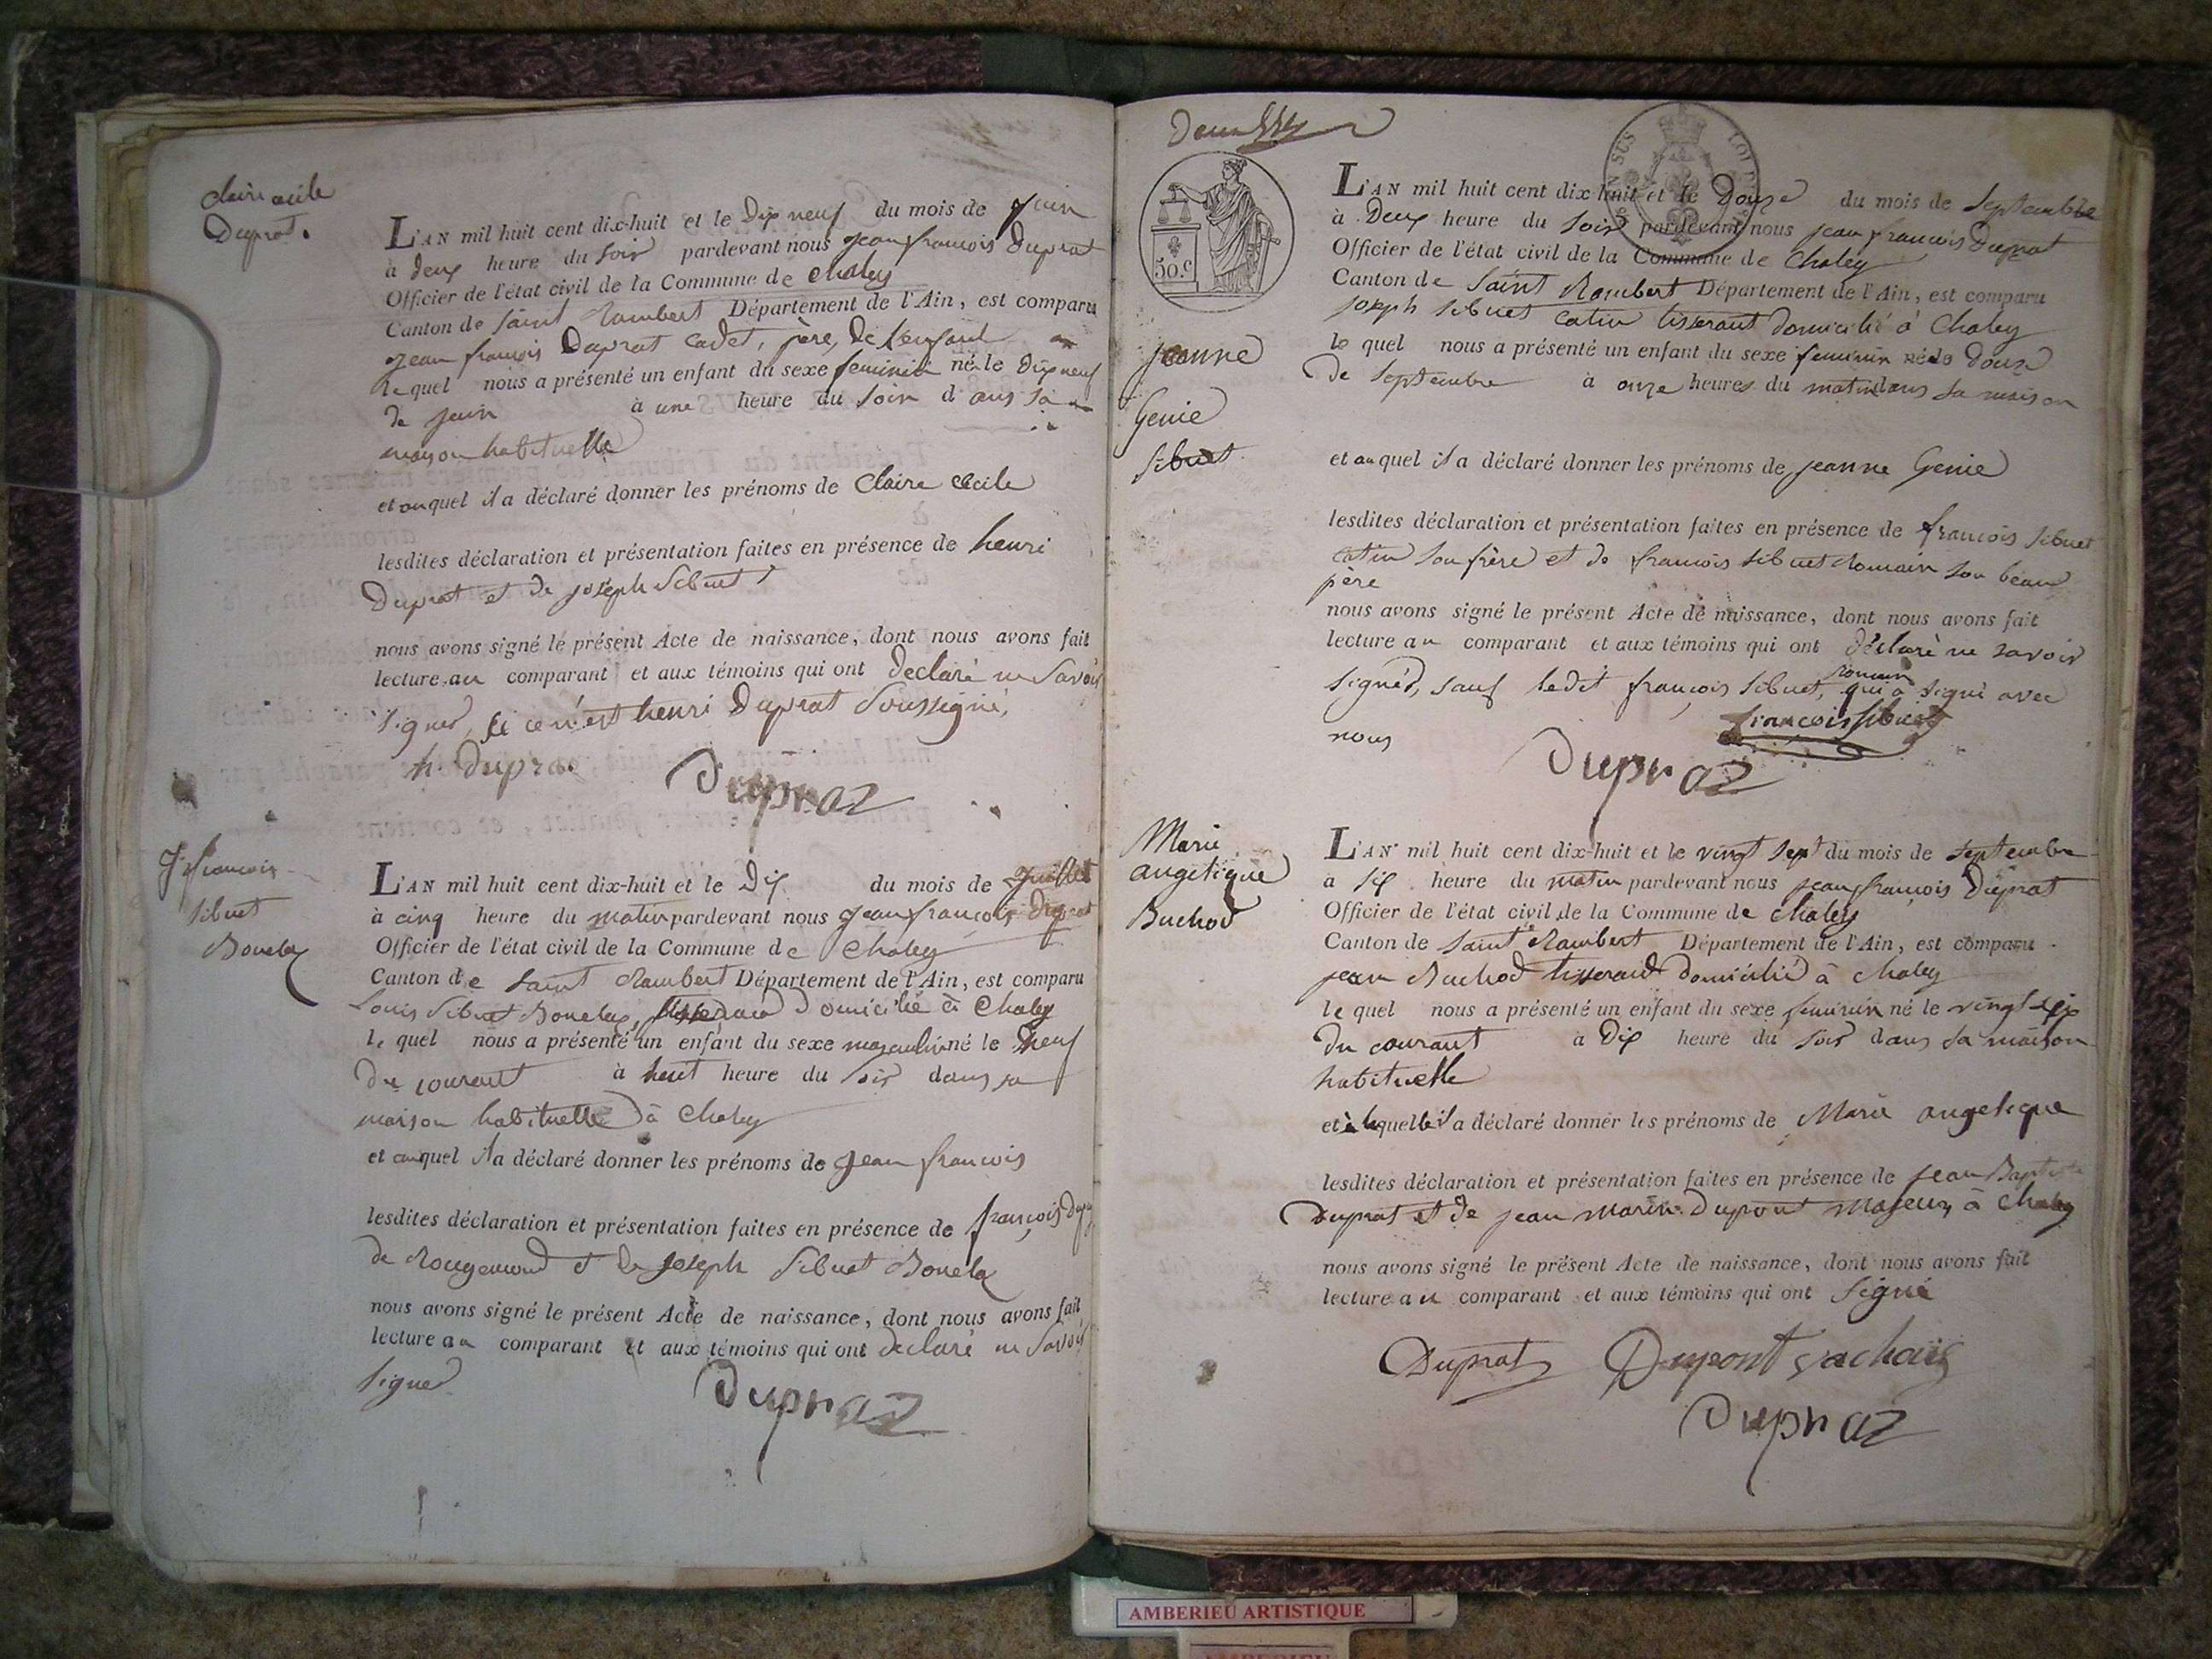 claire cecile
Duprat.
L'AN mil huit cent dix-huit et le Dix neuf du mois de juin
à deux heure du soir pardevant nous jean françois Duprat
Officier de l'état civil de la Commune de Chaley
Canton de saint Rambert Département de l'Ain, est comparu
jean françois Duprat cadet, père, de l'enfant
le quel nous a présenté un enfant du sexe feminin né le dix neuf
de juin à une heure du soir dans sa
maison habituelle
et auquel il a déclaré donner les prénoms de Claire cecile
lesdites déclaration et présentation faites en présence de henri
Duprat et de joseph Sibuet
nous avons signé le présent Acte de naissance, dont nous avons fait
lecture au comparant et aux témoins qui ont declaré ne savoir
signer, si ce n'est henri Duprat Soussigné,
h Duprat
Dupraz
j françois
sibuet
Bonelax
L'AN mil huit cent dix-huit et le Dix du mois de juillet
à cinq heure du matin pardevant nous jean françois Duprat
Officier de l'état civil de la Commune de Chaley
Canton de saint Rambert Département de l'Ain, est comparu
Louis Sibuet Bonelax, tisserand domicilié à Chaley
le quel nous a présenté un enfant du sexe masculin né le neuf
du courant à huit heure du soir dans sa
maison habituelle à Chaley
et auquel il a déclaré donner les prénoms de jean françois
lesdites déclaration et présentation faites en présence de françois
de Rougemond et de joseph Sibuet Bonelax
nous avons signé le présent Acte de naissance, dont nous avons fait
lecture au comparant et aux témoins qui ont declaré ne Savoir
signer
Dupraz
50.c
jeanne
Genie
sibuet
L'AN mil huit cent dix-huit et le Douze du mois de septembre
à Deux heure du soir pardevant nous jean françois Duprat
Officier de l'état civil de la Commune de Chaley
Canton de Saint Rambert Département de l'Ain, est comparu
joseph sibuet catin tisserant domicilié à Chaley
le quel nous a présenté un enfant du sexe feminin né le douze
de septembre à onze heures du matin dans sa maison
et auquel il a déclaré donner les prénoms de jeanne Genie
lesdites déclaration et présentation faites en présence de françois sibuet
catin son frère et de françois sibuet Romain son beau
père
nous avons signé le présent Acte de naissance, dont nous avons fait
lecture au comparant et aux témoins qui ont déclaré ne savoir
signér, sauf ledit françois sibuet, romain qui a signé avec
nous
françois sibuet
Dupraz
Marie
angelique
Buchod
L'AN mil huit cent dix-huit et le vingt sept du mois de septembre
à six heure du matin pardevant nous jean françois Duprat
Officier de l'état civil de la Commune de Chaley
Canton de saint Rambert Département de l'Ain, est comparu
jean Buchod tisserand domicilié à Chaley
le quel nous a présenté un enfant du sexe feminin né le vingt six
du courant à Dix heure du soir dans sa maison
habituelle
et à laquelle il a déclaré donner les prénoms de Marie angelique
lesdites déclaration et présentation faites en présence de jean Baptiste
Duprat et de jean marin Dupont majeurs à Chaley
nous avons signé le présent Acte de naissance, dont nous avons fait
lecture au comparant et aux témoins qui ont signé
Duprat Dupont
Dupraz
AMBERIEU ARTISTIQUE
AMBERIEU